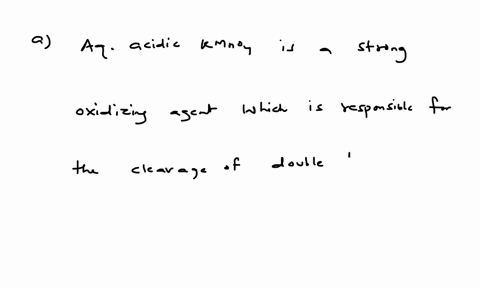 a) Aq. acidic KMnO4 is a strong
oxidizing agent which is responsible for
the cleavage of double